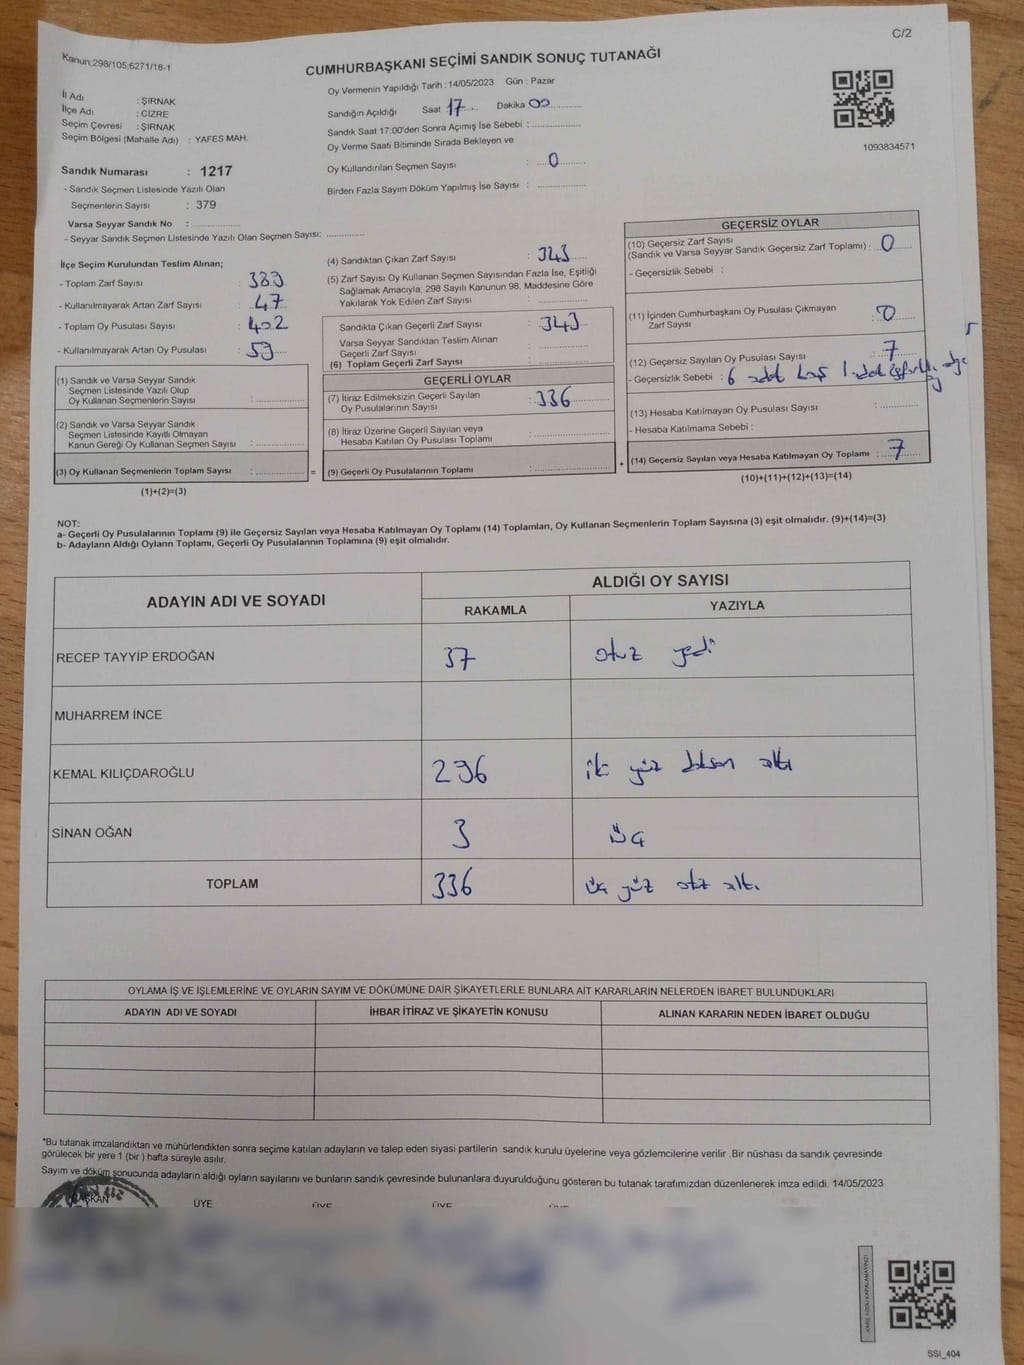 C/2
Kanun;298/105;6271/18-1
CUMHURBAŞKANI SEÇİMİ SANDIK SONUÇ TUTANAĞI
İl Adı : ŞIRNAK
İlçe Adı : CİZRE
Seçim Çevresi : ŞIRNAK
Seçim Bölgesi (Mahalle Adı) : YAFES MAH.
Oy Vermenin Yapıldığı Tarih : 14/05/2023 Gün : Pazar
Sandığın Açıldığı Saat 17 Dakika 00
Sandık Saat 17:00'den Sonra Açımış İse Sebebi :
Oy Verme Saati Bitiminde Sırada Bekleyen ve
Oy Kullandırılan Seçmen Sayısı : 0
Birden Fazla Sayım Döküm Yapılmış İse Sayısı :
1093834571
Sandık Numarası : 1217
- Sandık Seçmen Listesinde Yazılı Olan
Seçmenlerin Sayısı : 379
Varsa Seyyar Sandık No :
- Seyyar Sandık Seçmen Listesinde Yazılı Olan Seçmen Sayısı:
İlçe Seçim Kurulundan Teslim Alınan;
- Toplam Zarf Sayısı :
- Kullanılmayarak Artan Zarf Sayısı : 47
- Toplam Oy Pusulası Sayısı : 402
- Kullanılmayarak Artan Oy Pusulası : 59
(1) Sandık ve Varsa Seyyar Sandık
Seçmen Listesinde Yazılı Olup
Oy Kullanan Seçmenlerin Sayısı :
(2) Sandık ve Varsa Seyyar Sandık
Seçmen Listesinde Kayıtlı Olmayan
Kanun Gereği Oy Kullanan Seçmen Sayısı :
(3) Oy Kullanan Seçmenlerin Toplam Sayısı : =
(1)+(2)=(3)
(4) Sandıktan Çıkan Zarf Sayısı : 343
(5) Zarf Sayısı Oy Kullanan Seçmen Sayısından Fazla İse, Eşitliği
Sağlamak Amacıyla; 298 Sayılı Kanunun 98. Maddesine Göre
Yakılarak Yok Edilen Zarf Sayısı :
Sandıkta Çıkan Geçerli Zarf Sayısı : 343
Varsa Seyyar Sandıktan Teslim Alınan
Geçerli Zarf Sayısı :
(6) Toplam Geçerli Zarf Sayısı :
GEÇERLİ OYLAR
(7) İtiraz Edilmeksizin Geçerli Sayılan
Oy Pusulalarının Sayısı : 336
(8) İtiraz Üzerine Geçerli Sayılan veya
Hesaba Katılan Oy Pusulası Toplamı :
(9) Geçerli Oy Pusulalarının Toplamı : +
GEÇERSİZ OYLAR
(10) Geçersiz Zarf Sayısı
(Sandık ve Varsa Seyyar Sandık Geçersiz Zarf Toplamı) : 0
- Geçersizlik Sebebi :
(11) İçinden Cumhurbaşkanı Oy Pusulası Çıkmayan
Zarf Sayısı : 0
(12) Geçersiz Sayılan Oy Pusulası Sayısı : 7
- Geçersizlik Sebebi : 6 adet boş 1 adet
(13) Hesaba Katılmayan Oy Pusulası Sayısı :
- Hesaba Katılmama Sebebi :
(14) Geçersiz Sayılan veya Hesaba Katılmayan Oy Toplamı : 7
(10)+(11)+(12)+(13)=(14)
NOT:
a- Geçerli Oy Pusulalarının Toplamı (9) ile Geçersiz Sayılan veya Hesaba Katılmayan Oy Toplamı (14) Toplamları, Oy Kullanan Seçmenlerin Toplam Sayısına (3) eşit olmalıdır. (9)+(14)=(3)
b- Adayların Aldığı Oyların Toplamı, Geçerli Oy Pusulalarının Toplamına (9) eşit olmalıdır.
ADAYIN ADI VE SOYADI
ALDIĞI OY SAYISI
RAKAMLA YAZIYLA
RECEP TAYYİP ERDOĞAN 37 otuz yedi
MUHARREM İNCE
KEMAL KILIÇDAROĞLU 296 iki yüz doksan altı
SİNAN OĞAN 3 üç
TOPLAM 336 üç yüz otuz altı
OYLAMA İŞ VE İŞLEMLERİNE VE OYLARIN SAYIM VE DÖKÜMÜNE DAİR ŞİKAYETLERLE BUNLARA AİT KARARLARIN NELERDEN İBARET BULUNDUKLARI
ADAYIN ADI VE SOYADI İHBAR İTİRAZ VE ŞİKAYETİN KONUSU ALINAN KARARIN NEDEN İBARET OLDUĞU
*Bu tutanak imzalandıktan ve mühürlendikten sonra seçime katılan adayların ve talep eden siyasi partilerin sandık kurulu üyelerine veya gözlemcilerine verilir .Bir nüshası da sandık çevresinde
görülecek bir yere 1 (bir ) hafta süreyle asılır.
Sayım ve döküm sonucunda adayların aldığı oyların sayılarını ve bunların sandık çevresinde bulunanlara duyurulduğunu gösteren bu tutanak tarafımızdan düzenlenerek imza edildi. 14/05/2023
BAŞKAN ÜYE ÜYE ÜYE ÜYE
SSI_404